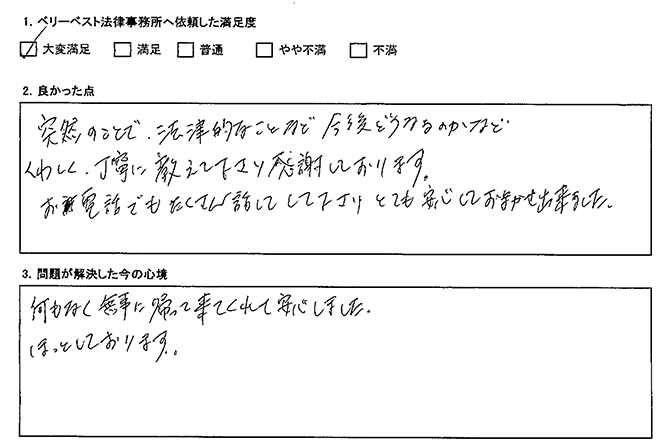 1. ベリーベスト法律事務所へ依頼した満足度
大変満足 満足 普通 やや不満 不満
2. 良かった点
突然のことで、法律的なことなど今後どうなるのかなど
くわしく、丁寧に教えて下さり感謝しております。
お電話でもたくさん話して下さりとても安心しておまかせ出来ました。
3. 問題が解決した今の心境
何もなく無事に帰って来てくれて安心しました。
ほっとしております。